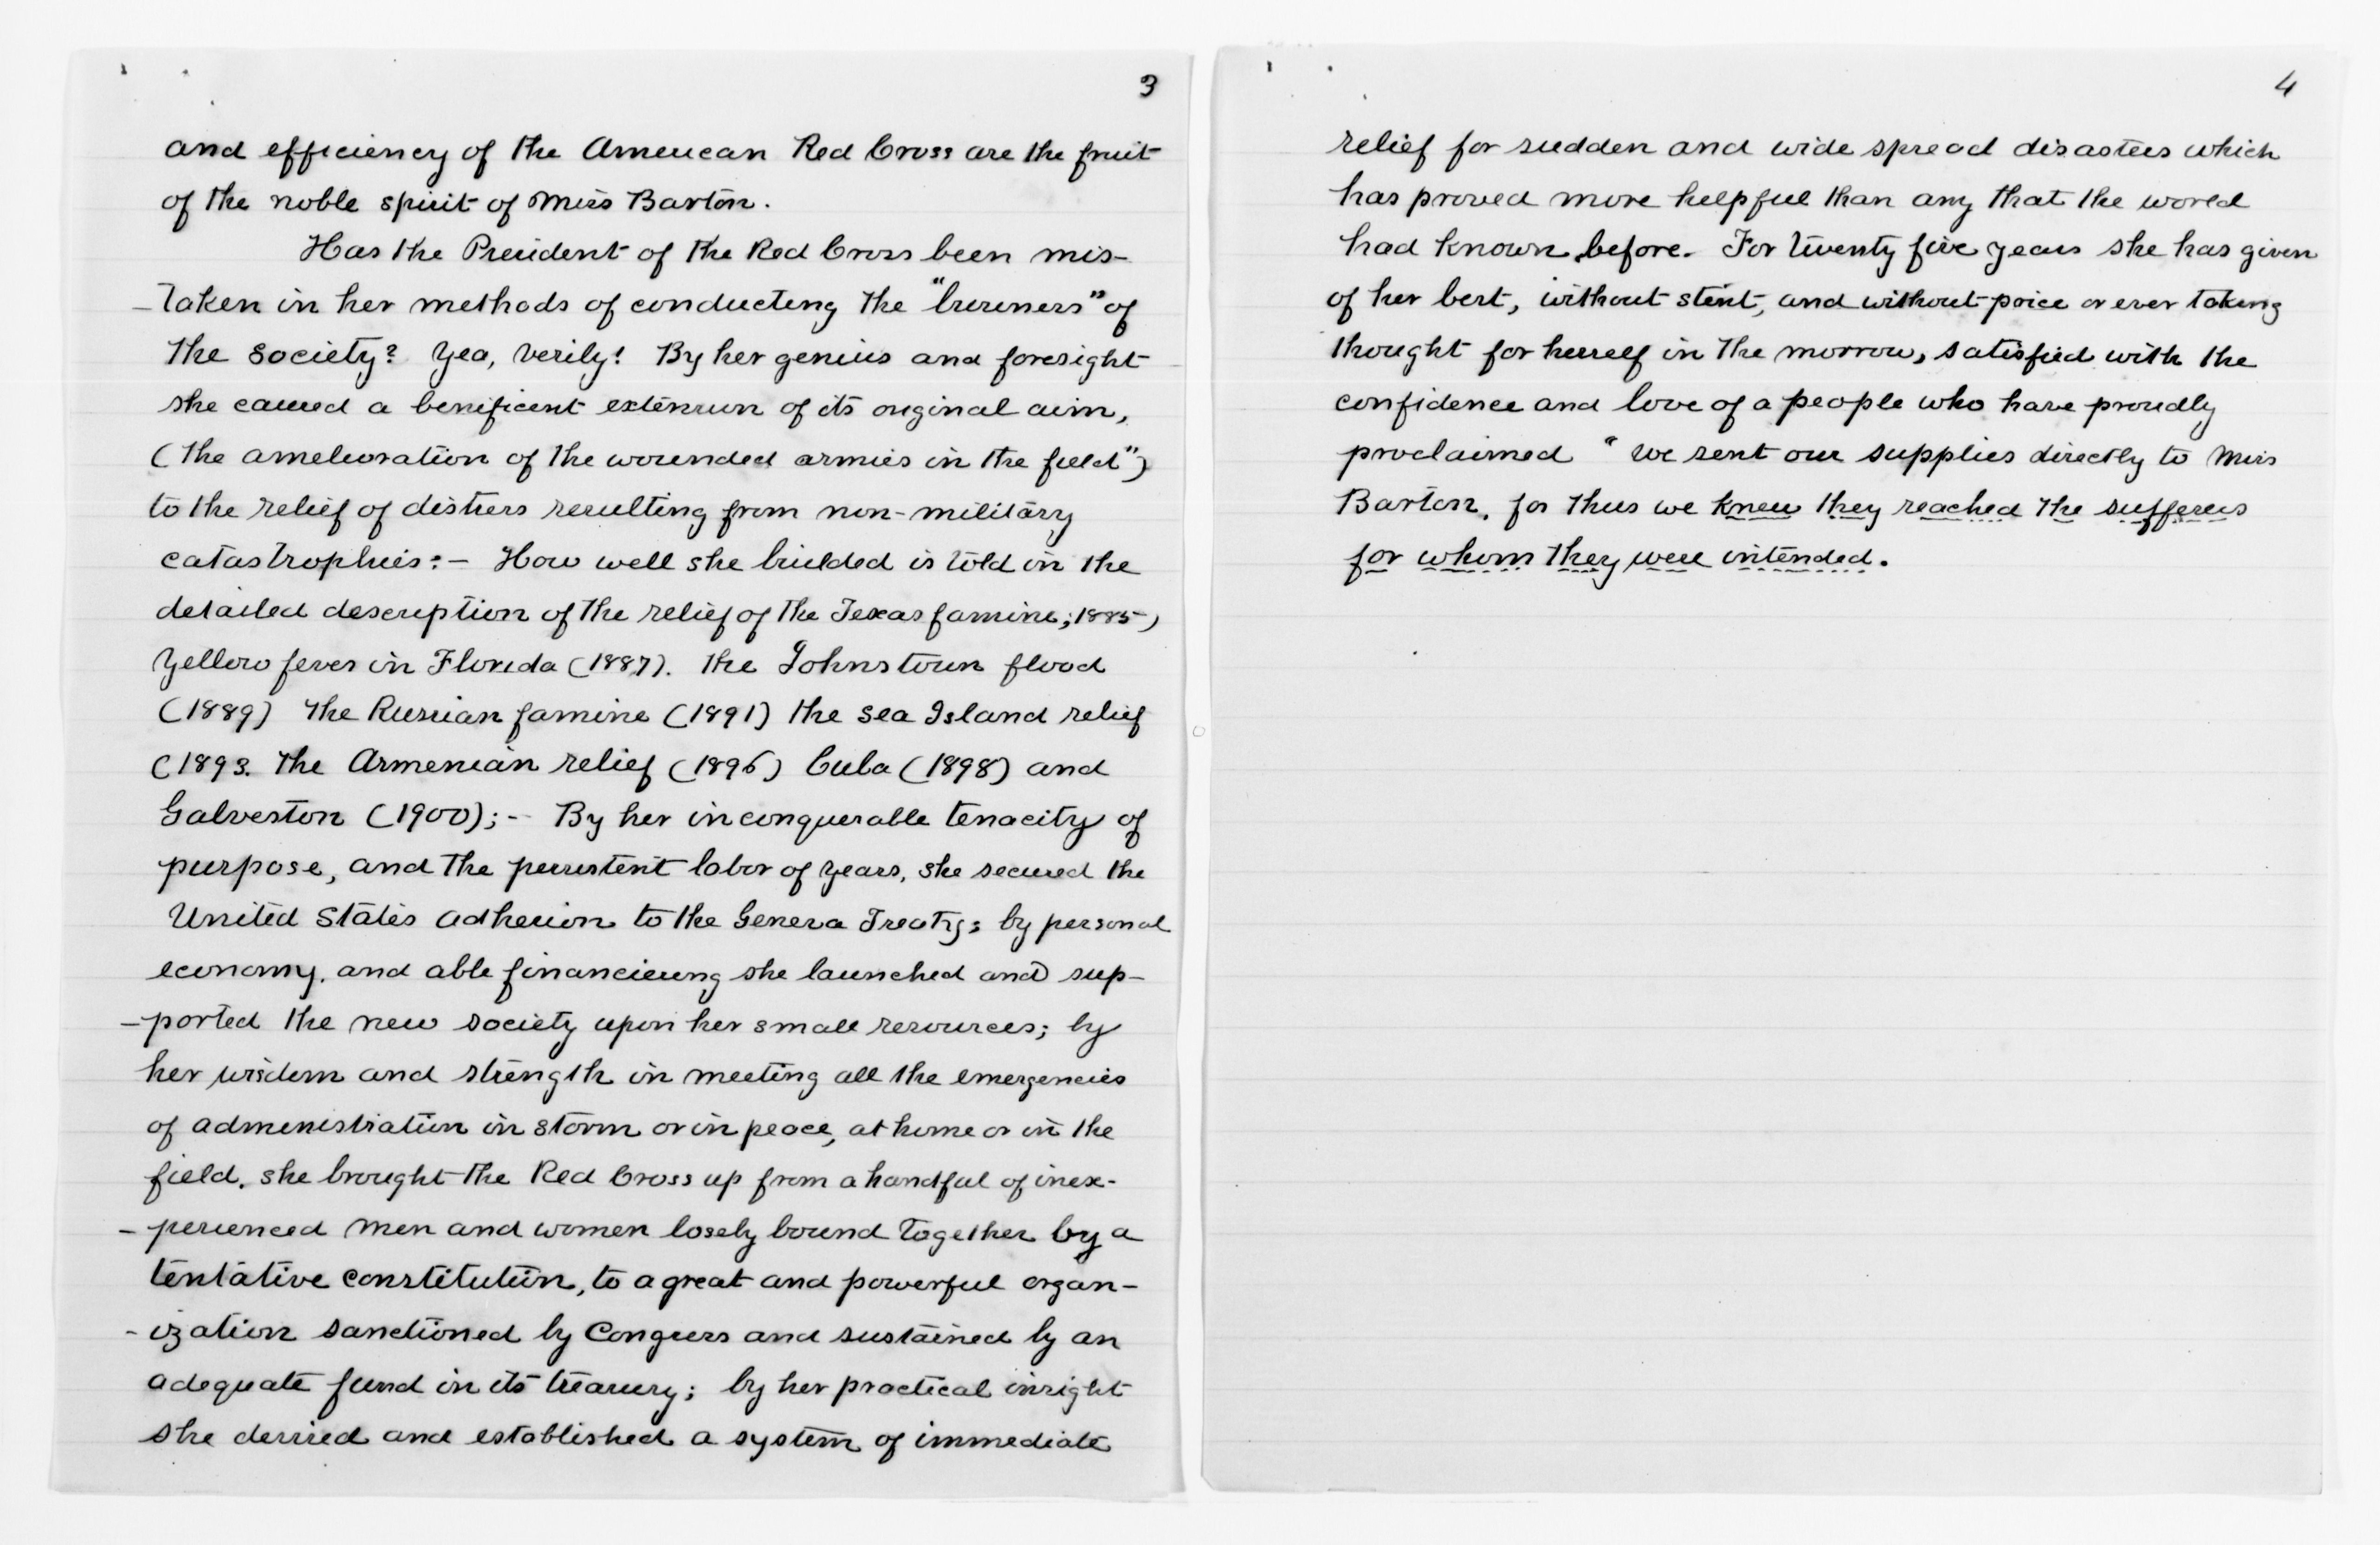 3
and efficiency of the American Red Cross are the fruit
of the noble spirit of Miss Barton.
Has the President of the Red Cross been mis-
-taken in her methods of conducting the "business" of
the society? Yea, verily! By her genius and foresight
she caused a benificent extension of its original aim,
(the amelioration of the wounded armies in the field")
to the relief of distress resulting from non-military
catastrophies:- How well she builded is told in the
detailed description of the relief of the Texas famine; 1885)
Yellow fever in Florida (1887). the Johnstown flood
(1889) the Russian famine (1891) the Sea Island relief
(1893. The Armenian relief (1896) Cuba (1898) and
Galveston (1900);- By her inconquerable tenacity of
purpose, and the persistent labor of years, she secured the
United States adhesion to the Geneva Treaty; by personal
economy, and able financiering she launched and sup-
-ported the new society upon her small resources; by
her wisdom and strength in meeting all the emergencies
of administration in storm or in peace, at home or in the
field, she brought the Red Cross up from a handful of inex-
-perienced men and women losely bound together by a
tentative constitution, to a great and powerful organ-
-ization sanctioned by Congress and sustained by an
adequate fund in its treasury; by her practical insight
she devised and established a system of immediate
4
relief for sudden and wide spread disasters which
has proved more helpful than any that the world
had known before. For twenty five years she has given
of her best, without stint, and without price or ever taking
thought for herself in the morrow, satisfied with the
confidence and love of a people who have proudly
proclaimed "We sent our supplies directly to Miss
Barton, for thus we knew they reached the sufferers
for whom they were intended.